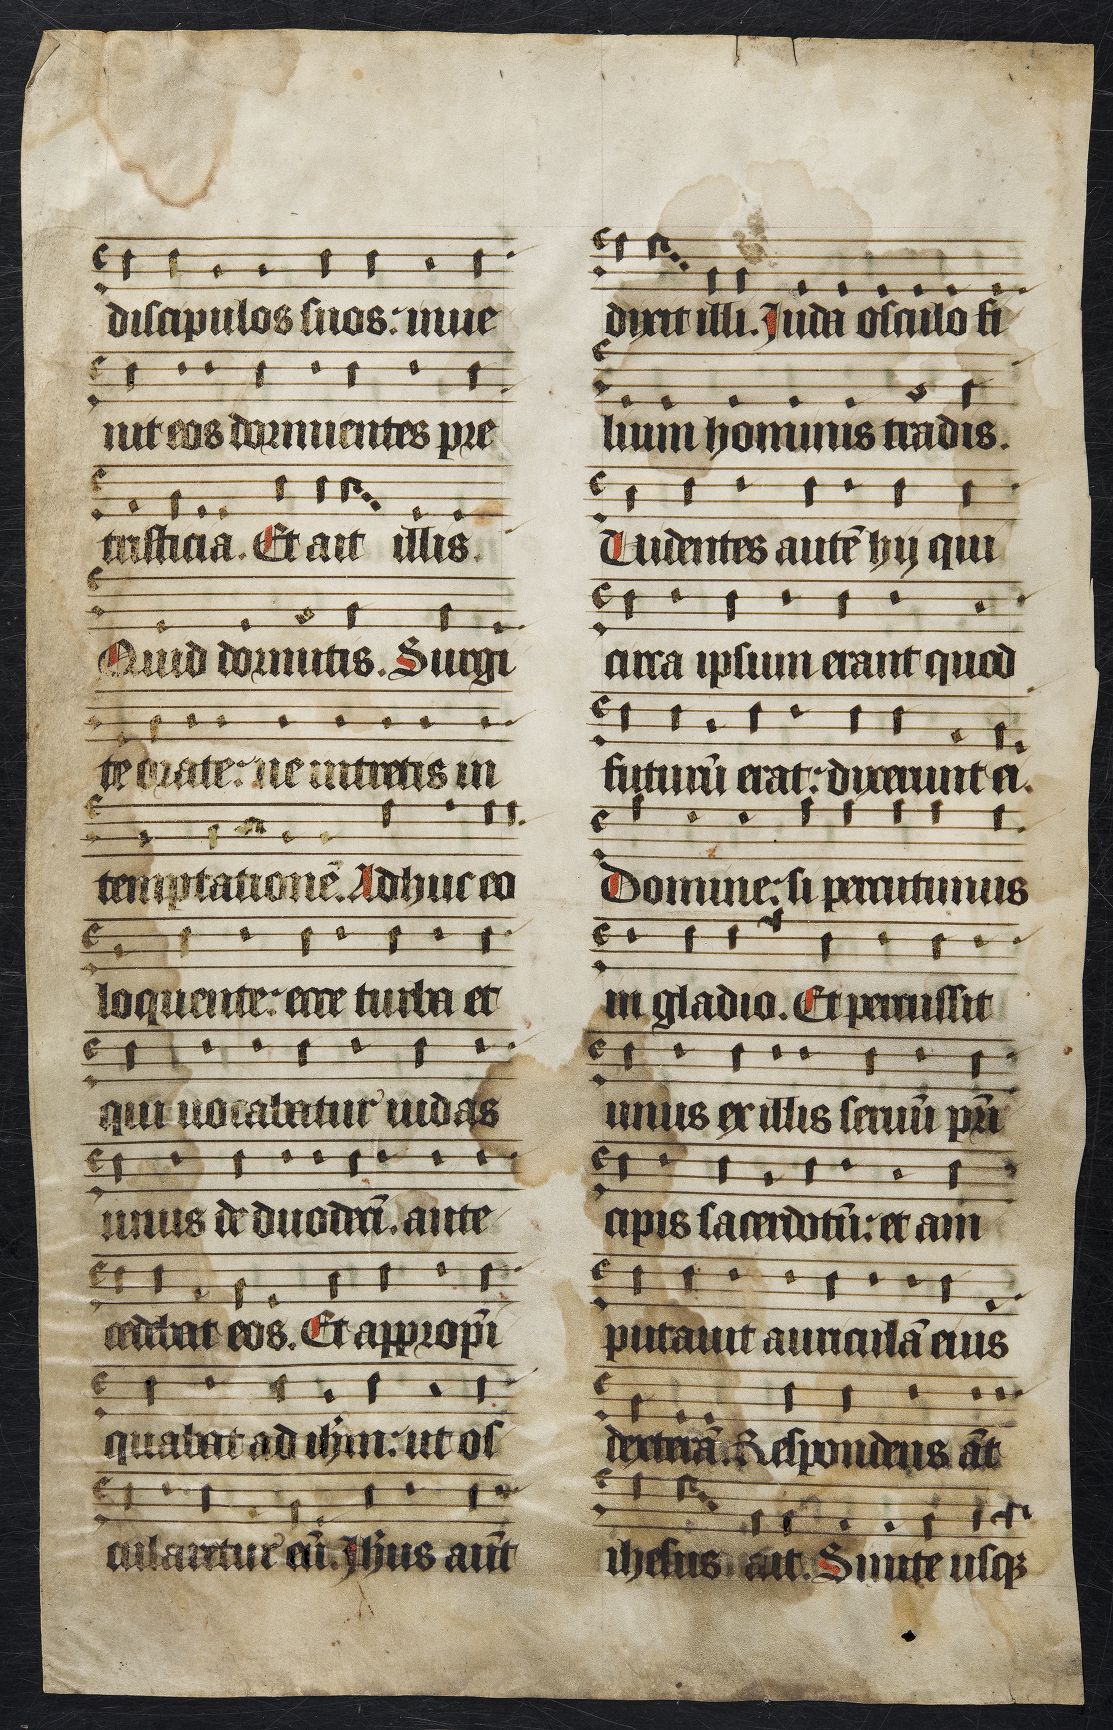 discipulos suos: inue
nit eos dormientes pre
tristicia. Et ait illis.
Quid dormitis. Surgi
te orate: ne intretis in
temptationē. Adhuc eo
loquente: ecce turba et
qui uocabatur iudas
unus de duodecī. ante
cedebat eos. Et appropī
quabat ad ihm: ut os
cularetur eū. Jhus aūt
dixit illi. Juda osculo fi
lium hominis tradis.
Uidentes autē hij qui
circa ipsum erant quod
futurū erat: dixerunt ei.
Domine: si percutimus
in gladio. Et percussit
unus ex illis seruū prī
cipis sacerdotū: et am
putauit auriculā eius
dexterā. Respondens āt
ihesus ait. Sinite usqꝫ